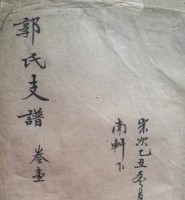 歲次乙丑冬月
南軒
郭氏支譜 卷壹